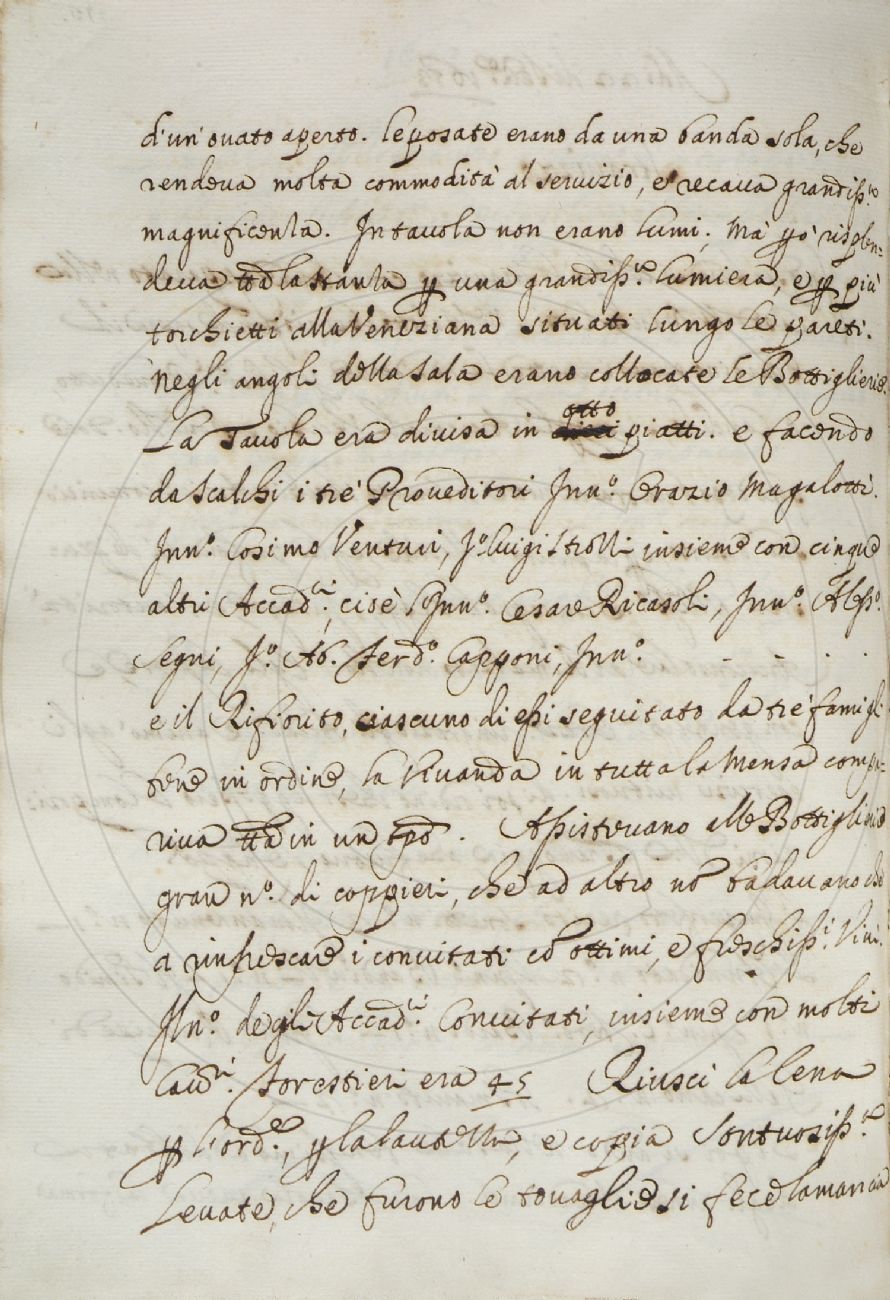 d'un'ouato aperto. le posate erano da una banda sola, che
rendeua molta commodità al seruizio, e recaua grandiss.ma
magnificenza. In tauola non erano lumi; Mà p̱ò risplen=
deua tt̄a la stanza p̱ una grandiss.ma lumiera, e p̱ più
torchietti alla Veneziana situati lungo le pareti.
negli angoli della sala erano collocate le Bottiglierie.
La Tauola era diuisa in otto piatti. e facendo
da scalchi i trè Proueditori Inn.o Orazio Magalotti.
Inn.o Cosimo Venturi, J.o luigi Strozzi insieme con cinque
altri Accad.ci, cioè l'Inn.o Cesare Ricasoli, Inn.o Aless.o
Segni, J.o Ab. ferd.o Capponi, Inn.o - . . .
e il Rifiorito, ciascuno di essi seguitato da trè famigli
bene in ordine, la Viuanda in tutta la Mensa compa=
riua tt̄a in un tp̄o. Assisteuano alle Bottiglierie
gran n.o di coppieri, che ad altro nō badauano che
a rinfrescare i conuitati cō ottimi, e freschiss.i Vini.
Il n.o degli Accad.ci Conuitati, insieme con molti
Cau.ri forestieri era 45 Riusci la Cena
p̱ l'ord.e, p̱ la lautezza, e copia Sontuosiss.a
Leuate, che furono le touaglie si fece la mancia